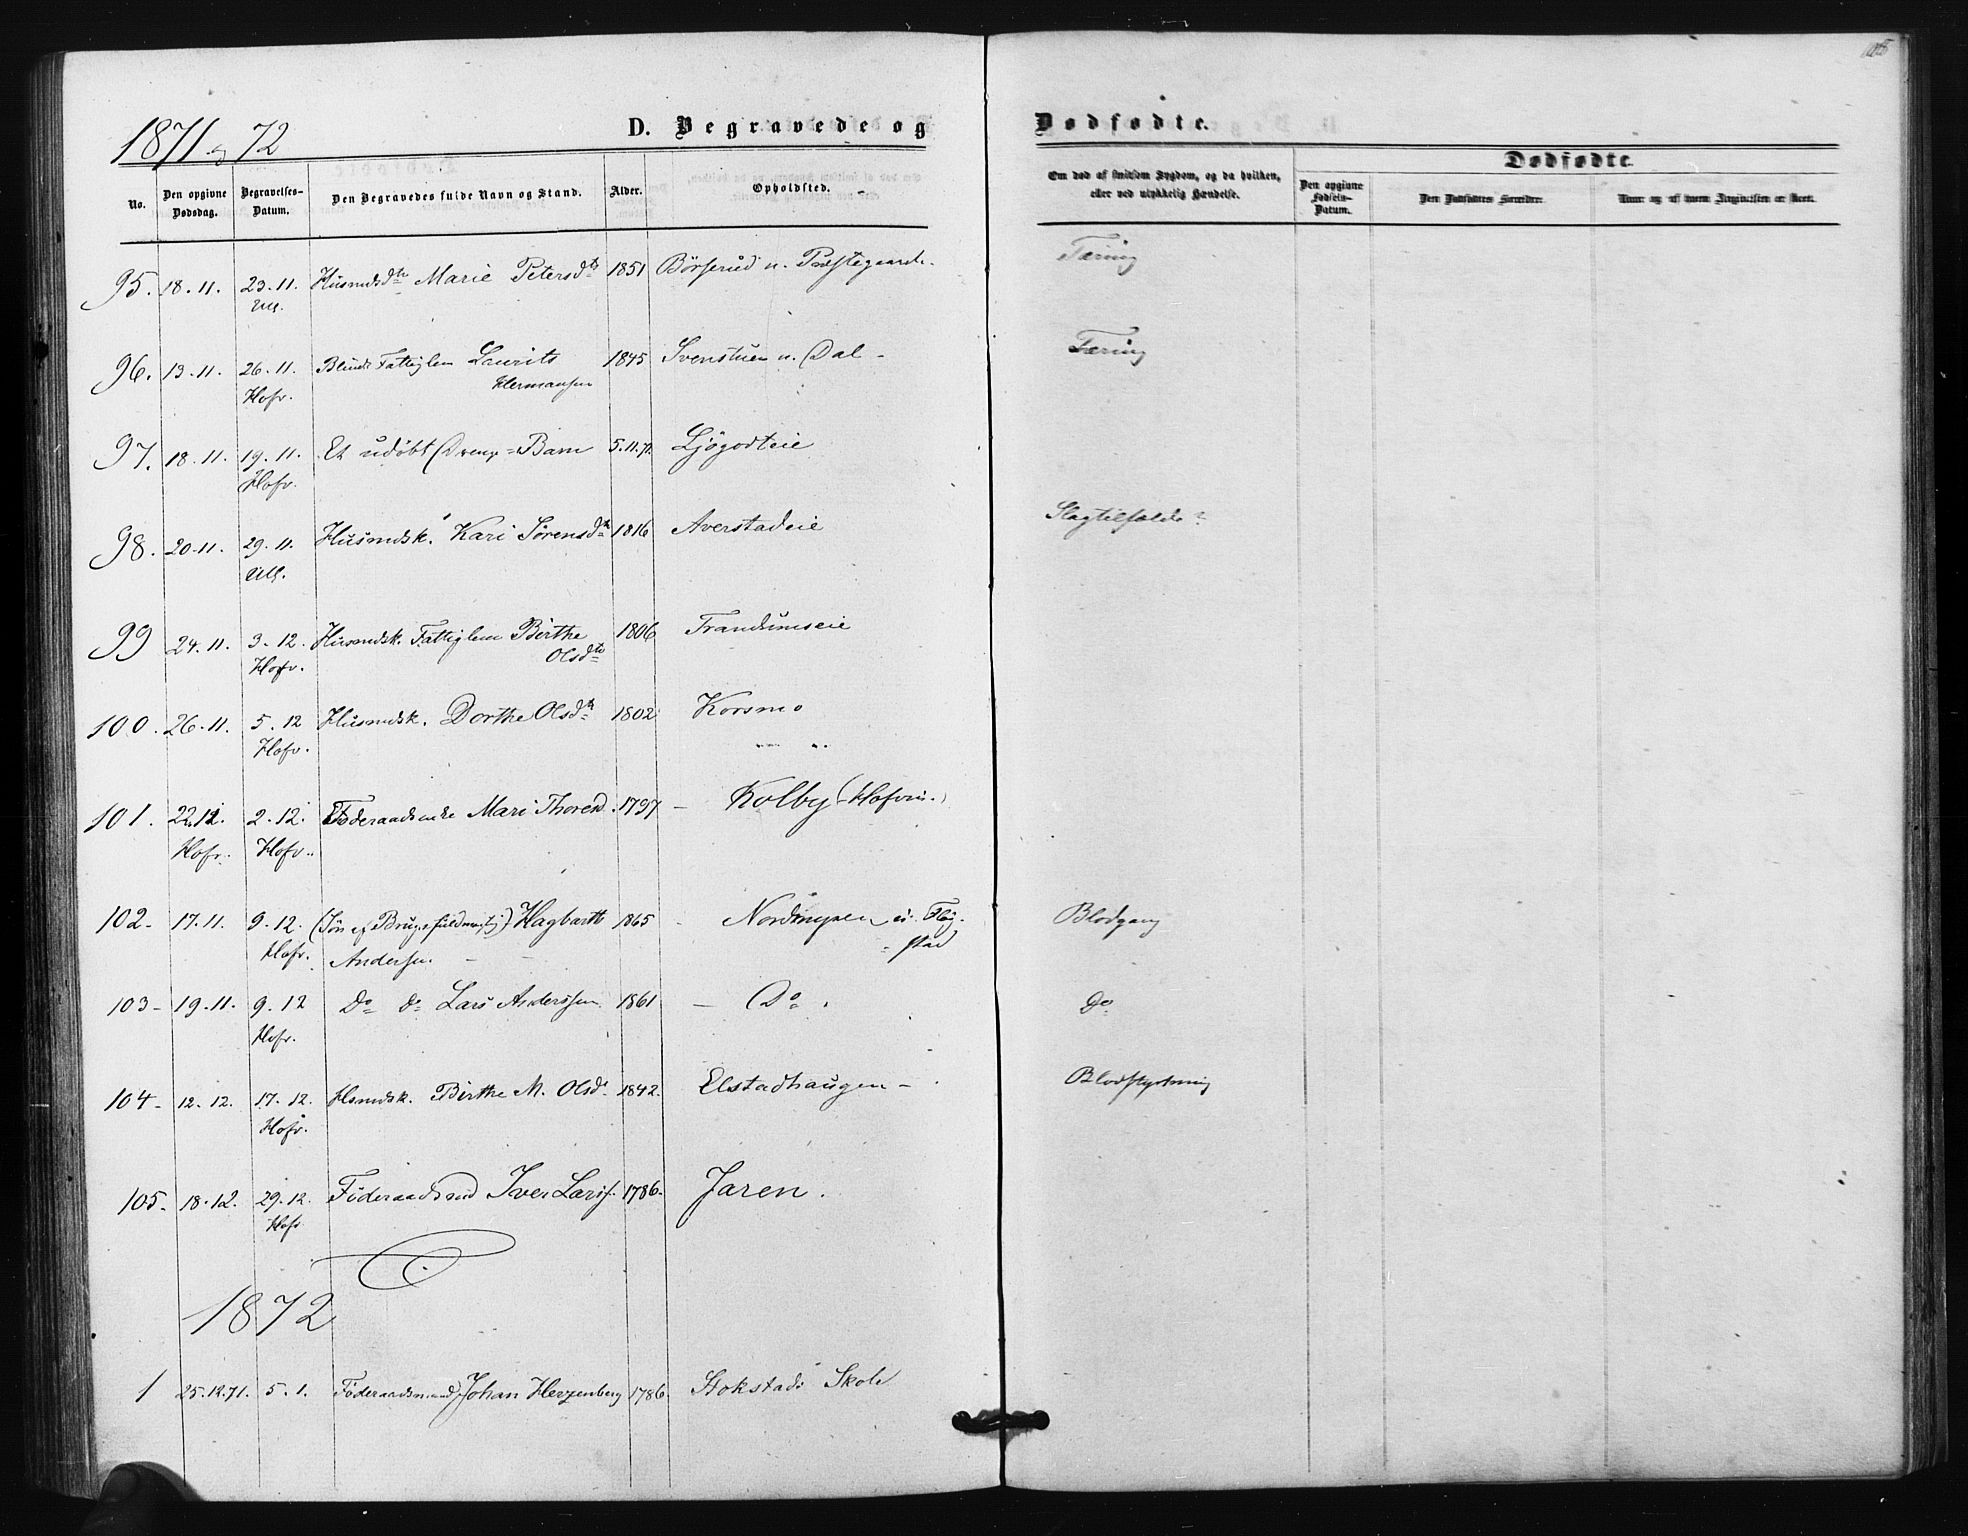 105
1871 og 72
D. Begravede og
Dødfødte.
No.
Den opgivne Dødsdag.
Begravelses-Datum.
Den Begravedes fulde Navn og Stand.
Alder.
Opholdsted.
Om død af smitsom Sygdom, og da hvilken, eller ved ulykkelig Hændelse.
Dødfødte.
Den opgivne Fødsels-Datum.
Den Dødfødtes Forældre.
Naar og af hvem Angivelsen er skeet.
95. 18.11. 23.11. Husmdsdtr Marie Petersdtr 1851 Børserud u. Præstegaard. Tæring
Ull.
96. 13.11. 26.11. Blind Fattiglem Laurits 1845 Svenstuen u. Dal - Tæring
Hofv. Hermansen
97. 18.11. 19.11. Et udöbt Drenge=Barn 5.11.71 Ljögodteie
Hofv.
98. 20.11. 29.11. Husmdsk. Kari Sørensdtr 1816 Averstadeie Slagtilfælde?
Ull.
99 24.11. 3.12. Husmdsk. Fattiglem Birthe 1806 Trandumseie
Hofv. Olsdtr
100. 26.11. 5.12 Husmdsk. Dorthe Olsdtr 1802 Korsmo
Hofv.
101. 2.12. Föderaadsenke Mari Thoresd. 1797 - Kolby (Hofvin.)
Hofv. Hofv.
102- 17.11. 9.12. (Søn af Brugsfuldmægtig) Hagbarth 1865 - Nordmyren u. Flog-
Hofv. Andersen. - stad Blodgang
103- 19.11. 9.12 Do do Lars Anderssen 1861 - Do. Do
Hofv.
104- 12.12. 17.12. Hsmdsk. Birthe M. Olsd. 1842. Elstadhaugen - Blodstyrtning
Hofv.
105. 18.12. 29.12. Föderaadsmd Iver Larss. 1786. Jaren.
Hofv
1872
1 25.12.71. 5.1. Föderaadsmand Johan Herzenberg 1786. Stokstad Skole